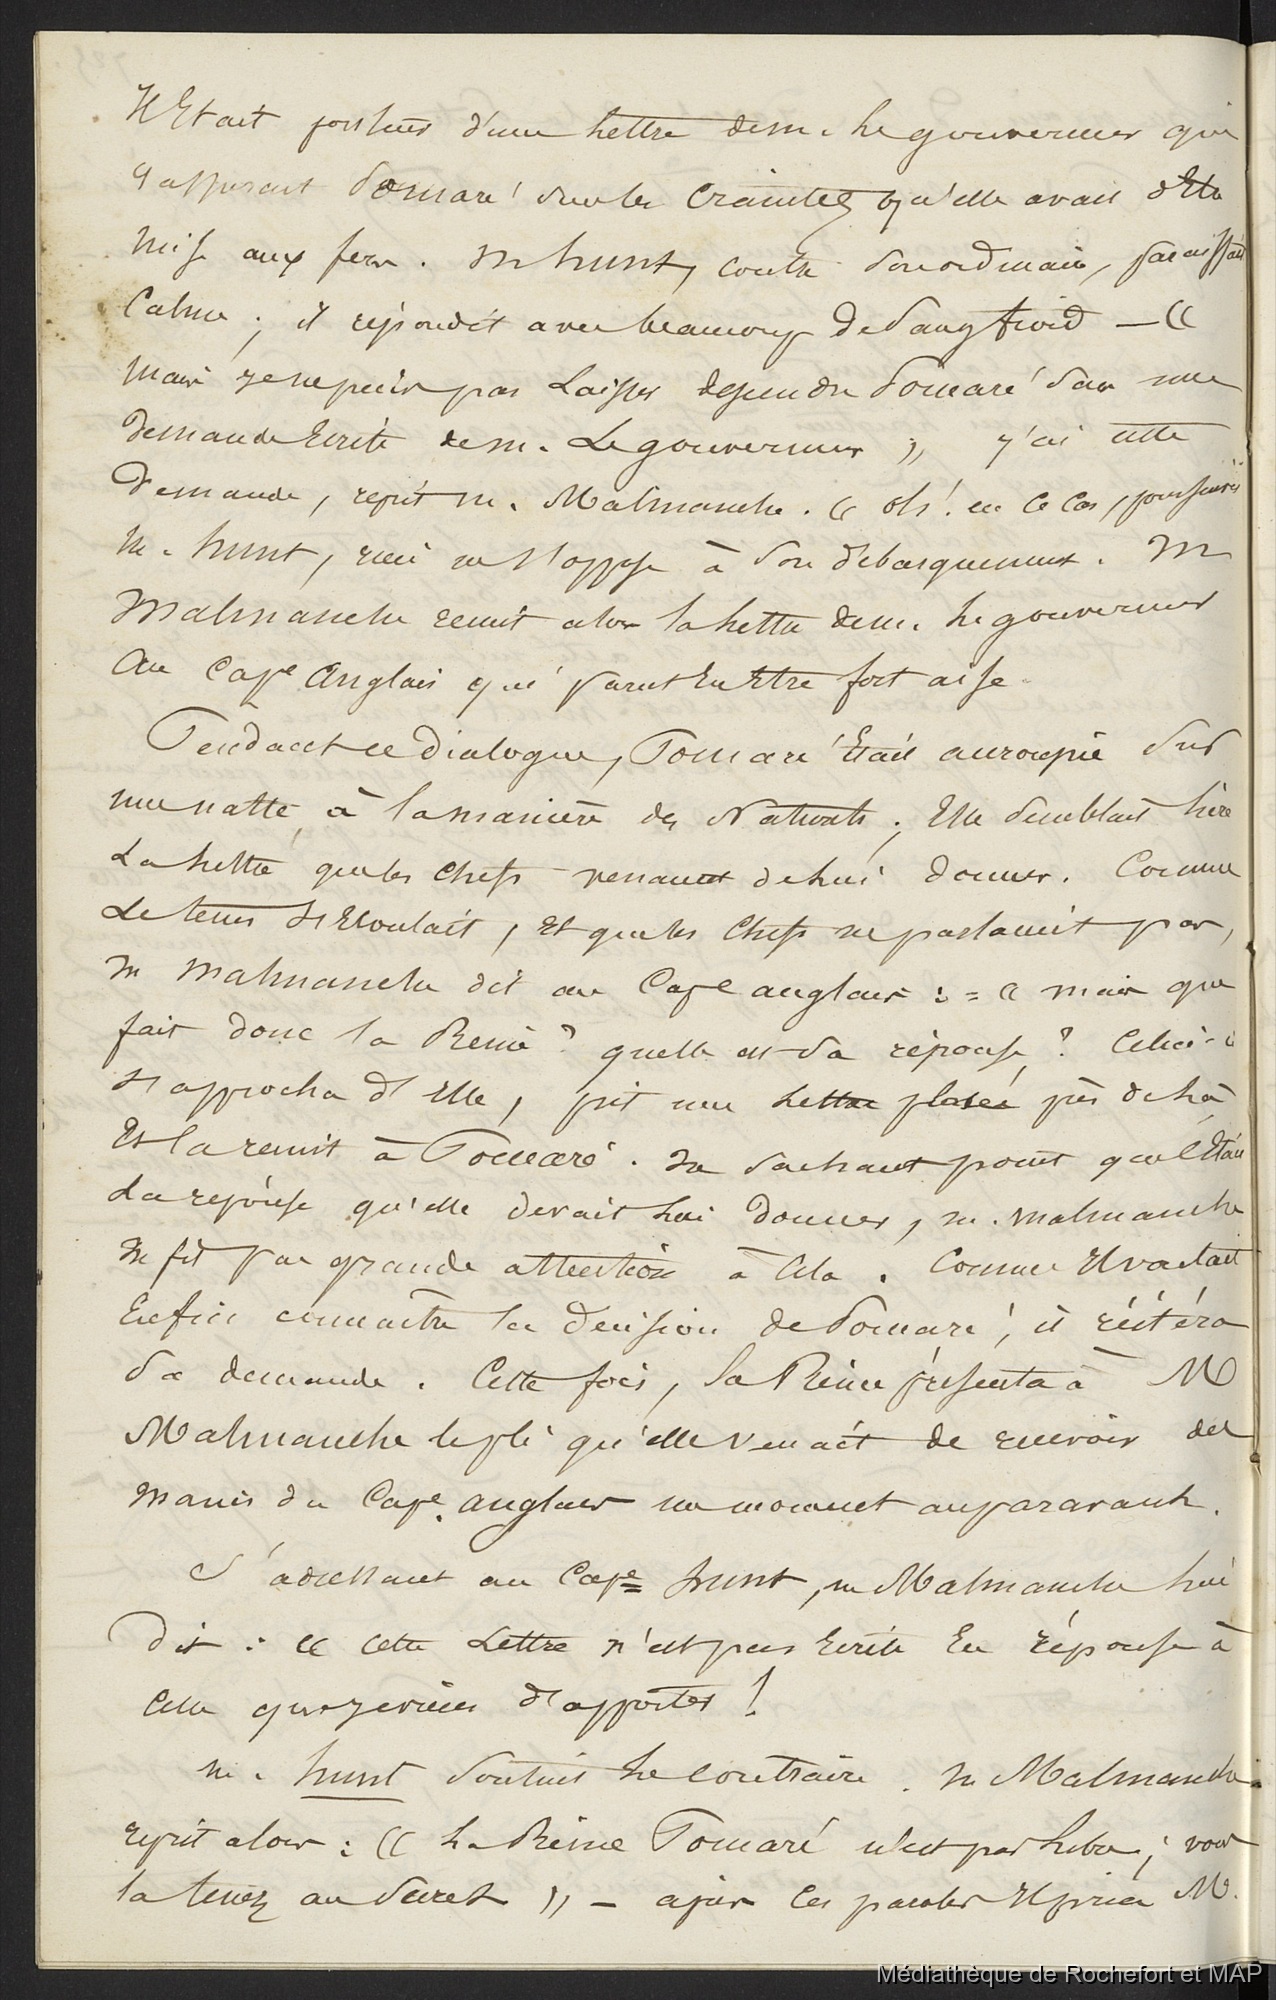 Il Etait porteur d'une Lettre de m. Le gouverneur qui
rassurait Pomaré sur les Craintes qu'elle avait d'Etre
mise aux fers. M hunt, contre son ordinaire, paraissait
Calme ; il répondit avec beaucoup de sang froid — «
mais je ne puis pas Laisser descendre Pomaré sans une
demande Ecrite de m. Le gouverneur » j'ai cette
demande, reprit m. Malmanche. « oh! en ce cas, poursuivit
m. hunt, rien ne s'oppose à son débarquement. M
Malmanche remit alors la Lettre de m. Le gouverneur
Au Cape Anglais qui parut En Etre fort aise.
Pendant ce dialogue, Pomaré Etait accroupie sur
une natte, à la manière des Naturels ; Elle semblait Lire
La Lettre que les Chefs venaient de Lui donner. Comme
Le tems s'Ecoulait, Et que les Chefs ne parlaient pas,
M Malmanche dit au Cape anglais : = « mais que
fait donc la Reine ? quelle est sa réponse ? Celui-ci
s'approcha d'Elle, prit une Lettre placée près de Là
Et la remit à Pomaré. Ne sachant point quelle Etait
La réponse qu'elle devait Lui donner, m. Malmanche
ne fit pas grande attention à Cela. Comme Il voulait
Enfin connaitre la décision de Pomaré, il réitéra
sa demande. Cette fois, la Reine présenta à M
Malmanche le pli qu'elle venait de recevoir des
mains du Cape. anglais un moment auparavant.
S'adressant au Cape hunt, m Malmanche Lui
dit : « cette Lettre n'est pas Ecrite En réponse à
Celle que je viens d'apporter !
m. hunt soutint Le contraire. M Malmanche
reprit alors : « La Reine Pomaré n'est pas Libre ; vous
la tenez au secret » — après ces paroles Il pria M.
Médiathèque de Rochefort et MAP